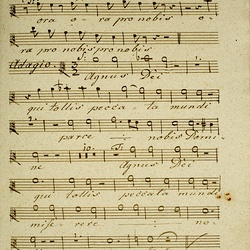 ora o- ra pro nobis o-
ra pro nobis pro nobis
Adagio. Agnus Dei
qui tollis pecca- ta mundi
parce nobis Domi-
ne Agnus Dei
qui tollis peccata mundi
mise- rere no-